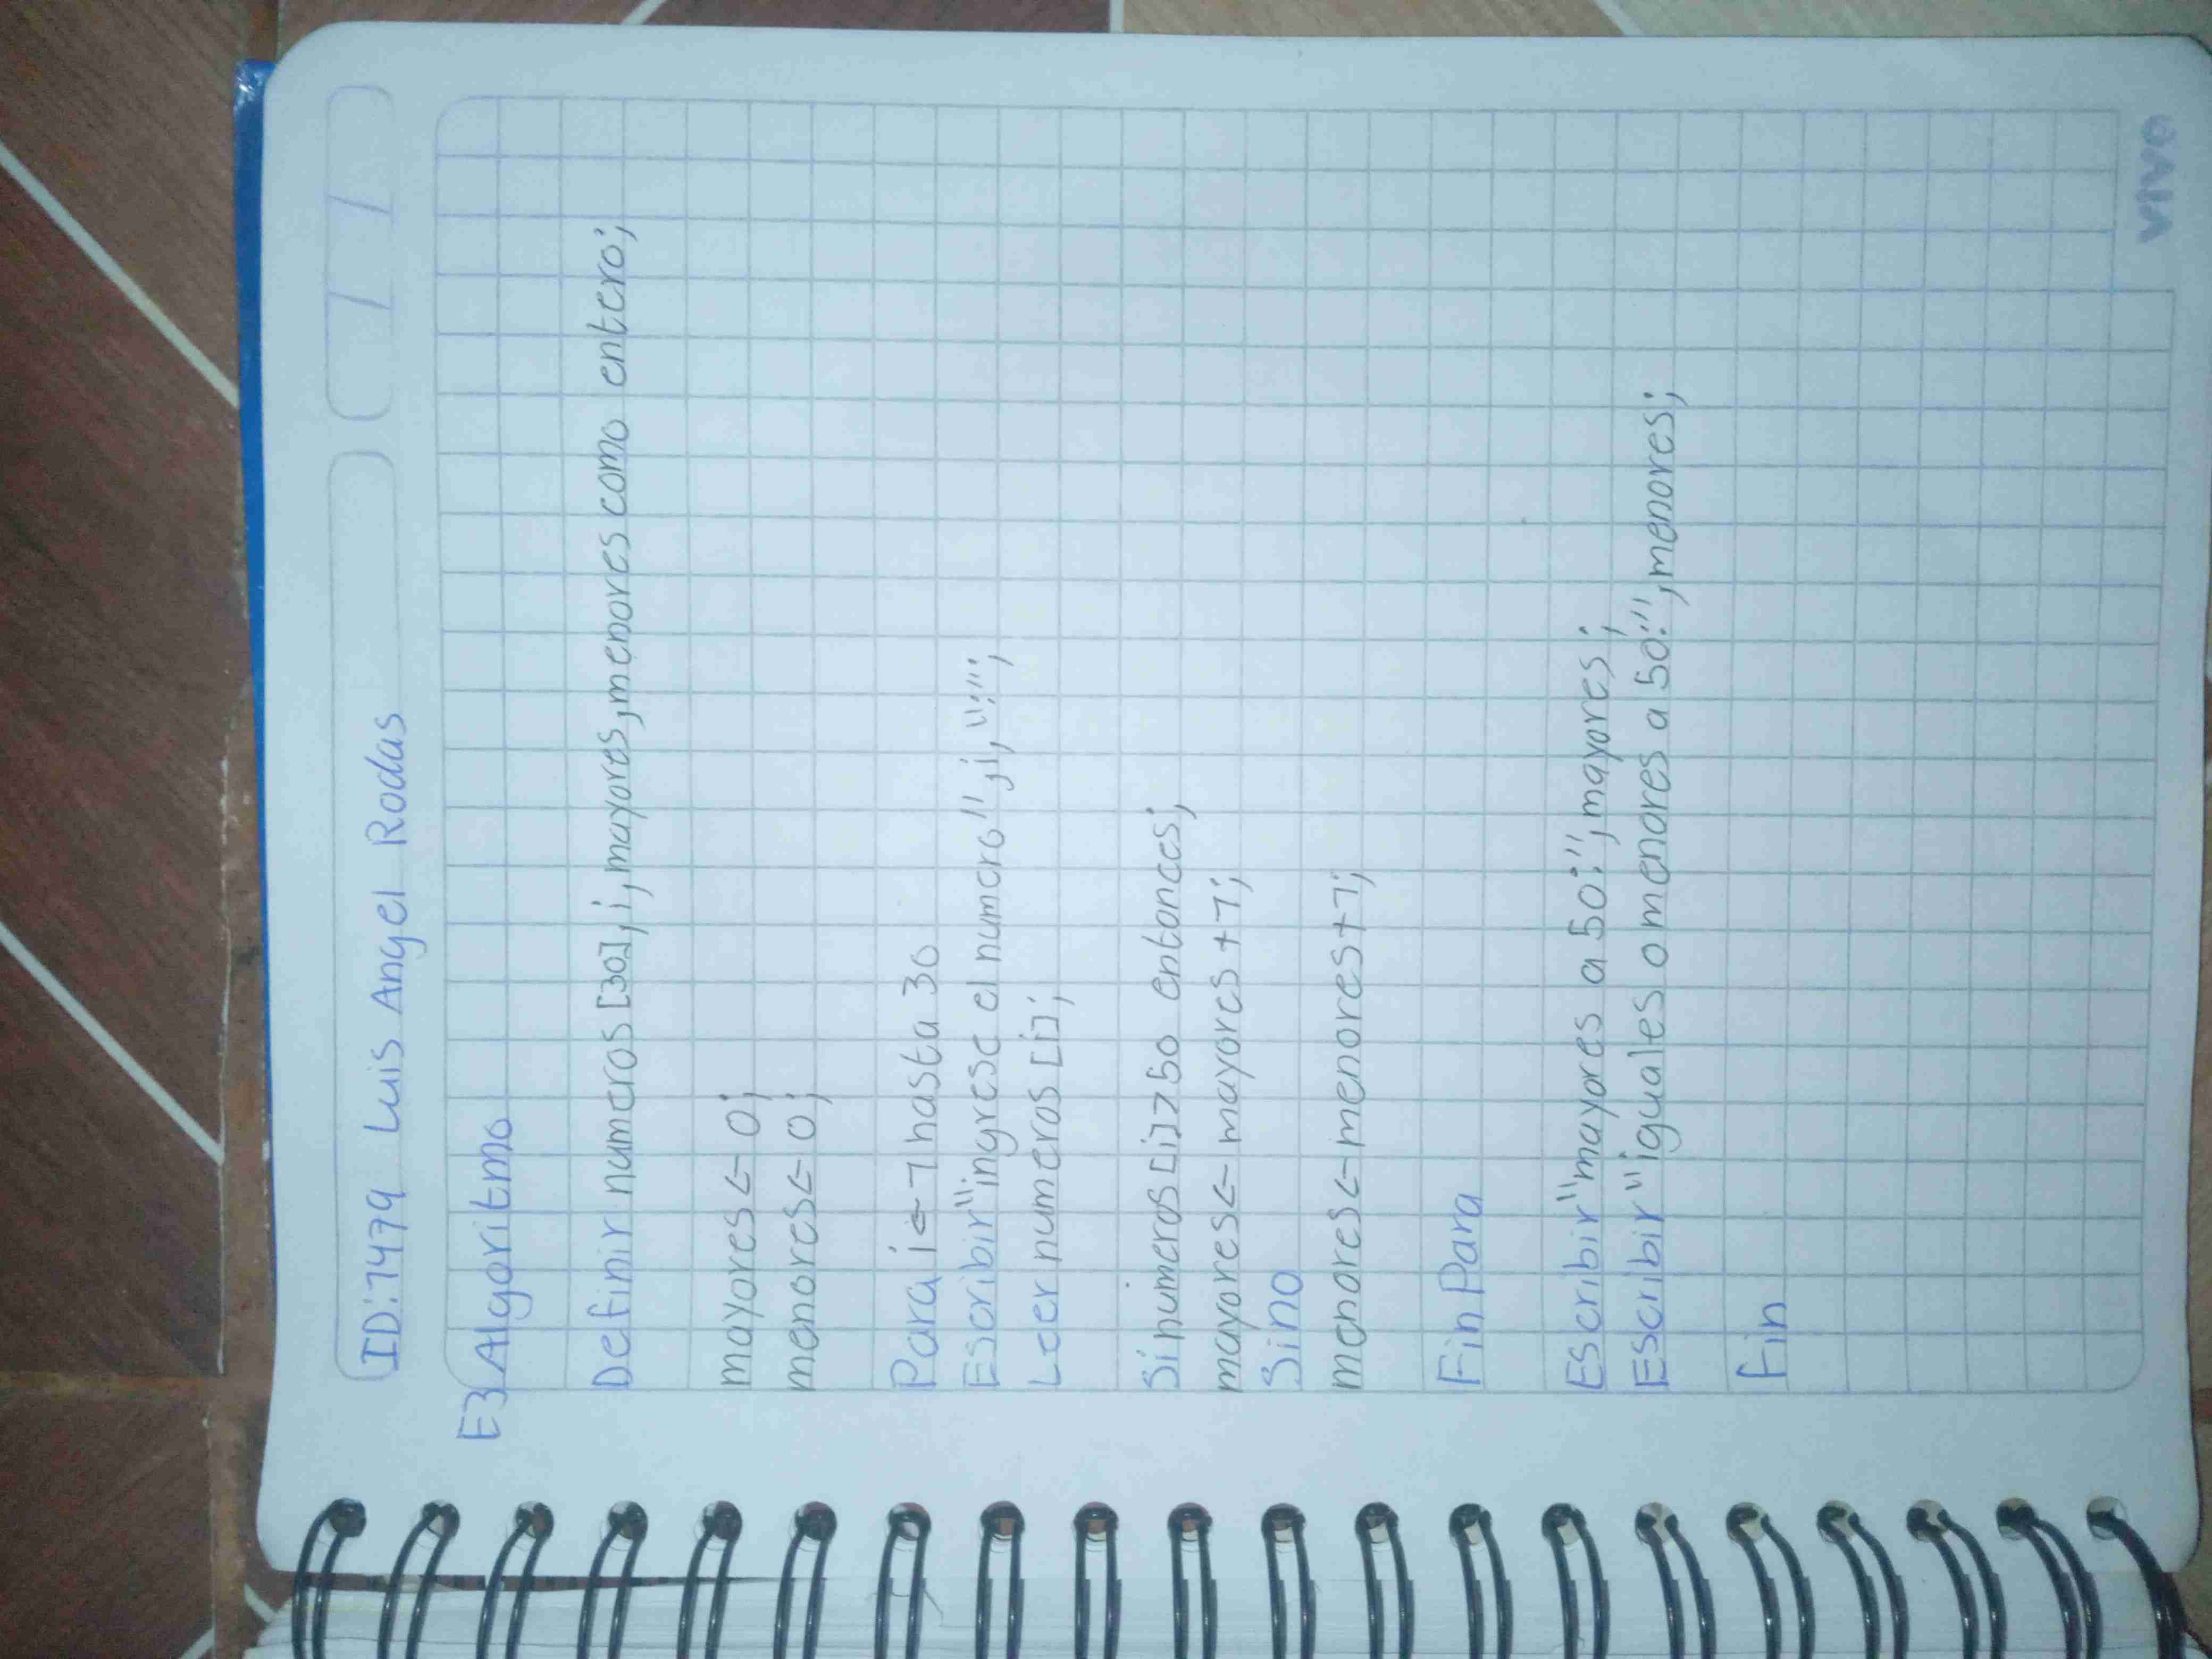 ID:1479 Luis Angel Rodas
E3 Algoritmo
Definir numeros[30],i,mayores,menores como entero;
mayores<-0;
menores<-0;
Para i<-1 hasta 30
Escribir"ingrese el numero",i,":";
Leer numeros[i];
Si numeros[i]>50 entonces;
mayores<-mayores+1;
Sino
menores<-menores+1;
Fin Para
Escribir"mayores a 50:",mayores;
Escribir"iguales o menores a 50:",menores;
Fin
vivo